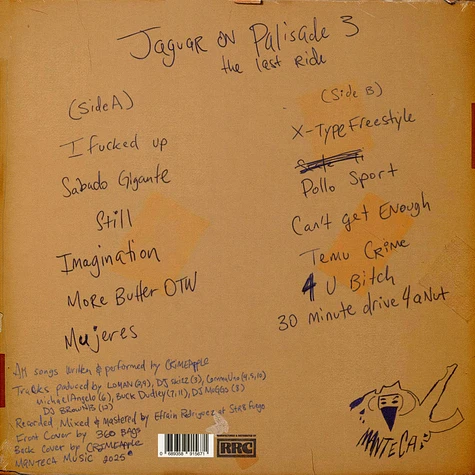 Jaguar on Palisade 3
the last Ride
(Side A)
I fucked up
Sabado Gigante
Still
Imagination
More Butter OTW
Mujeres
(Side B)
X-Type Freestyle
Pollo Sport
Can't get Enough
Temu Crime
4 U Bitch
30 minute drive 4 a Nut
All songs written & performed by CRIMEAPPLE
Tracks produced by Loman (2,9), DJ Skizz (3),
Michael Angelo (6), Buck Dudley (7,11), DJ Muggs (8)
DJ Brown13 (12)
Recorded Mixed & mastered by Efrain Rodriguez at
Front Cover by 360 BAGO
Back Cover by CRIMEAPPLE
MANTECA MUSIC 2025
RRC
MANTECA